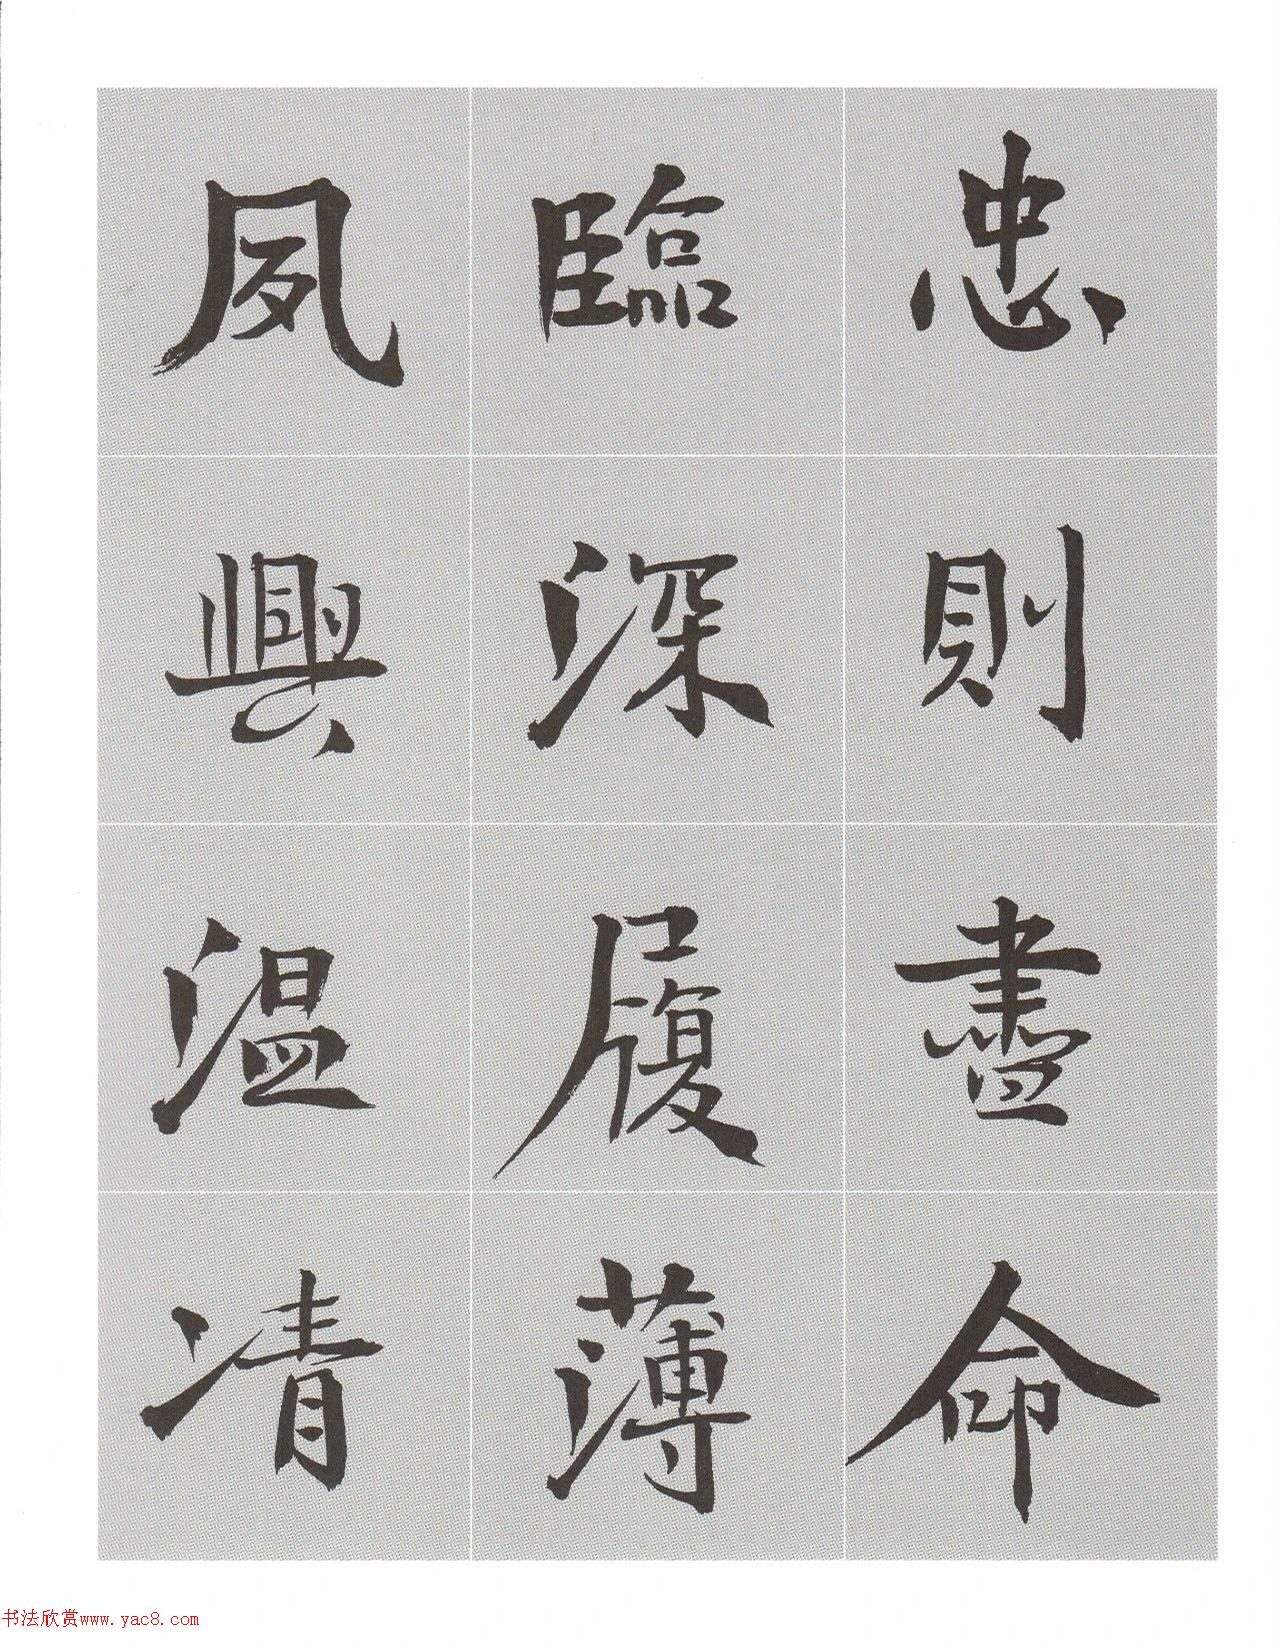 忠則盡命
臨深履薄
夙興温凊
书法欣赏www.yac8.com